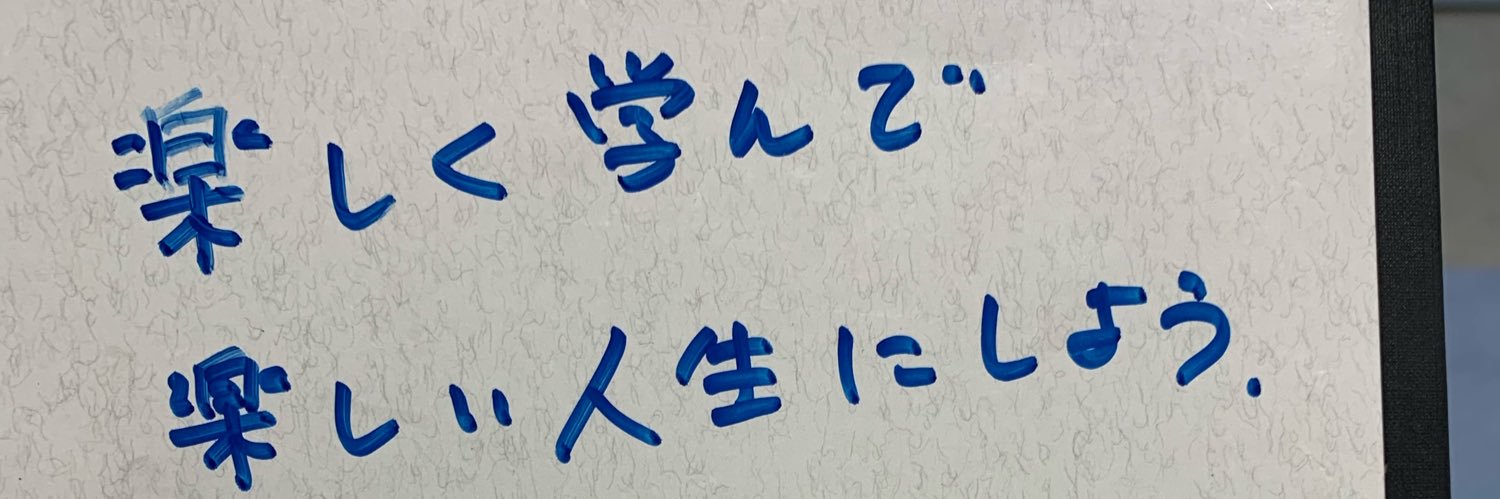 楽しく学んで
楽しい人生にしよう.